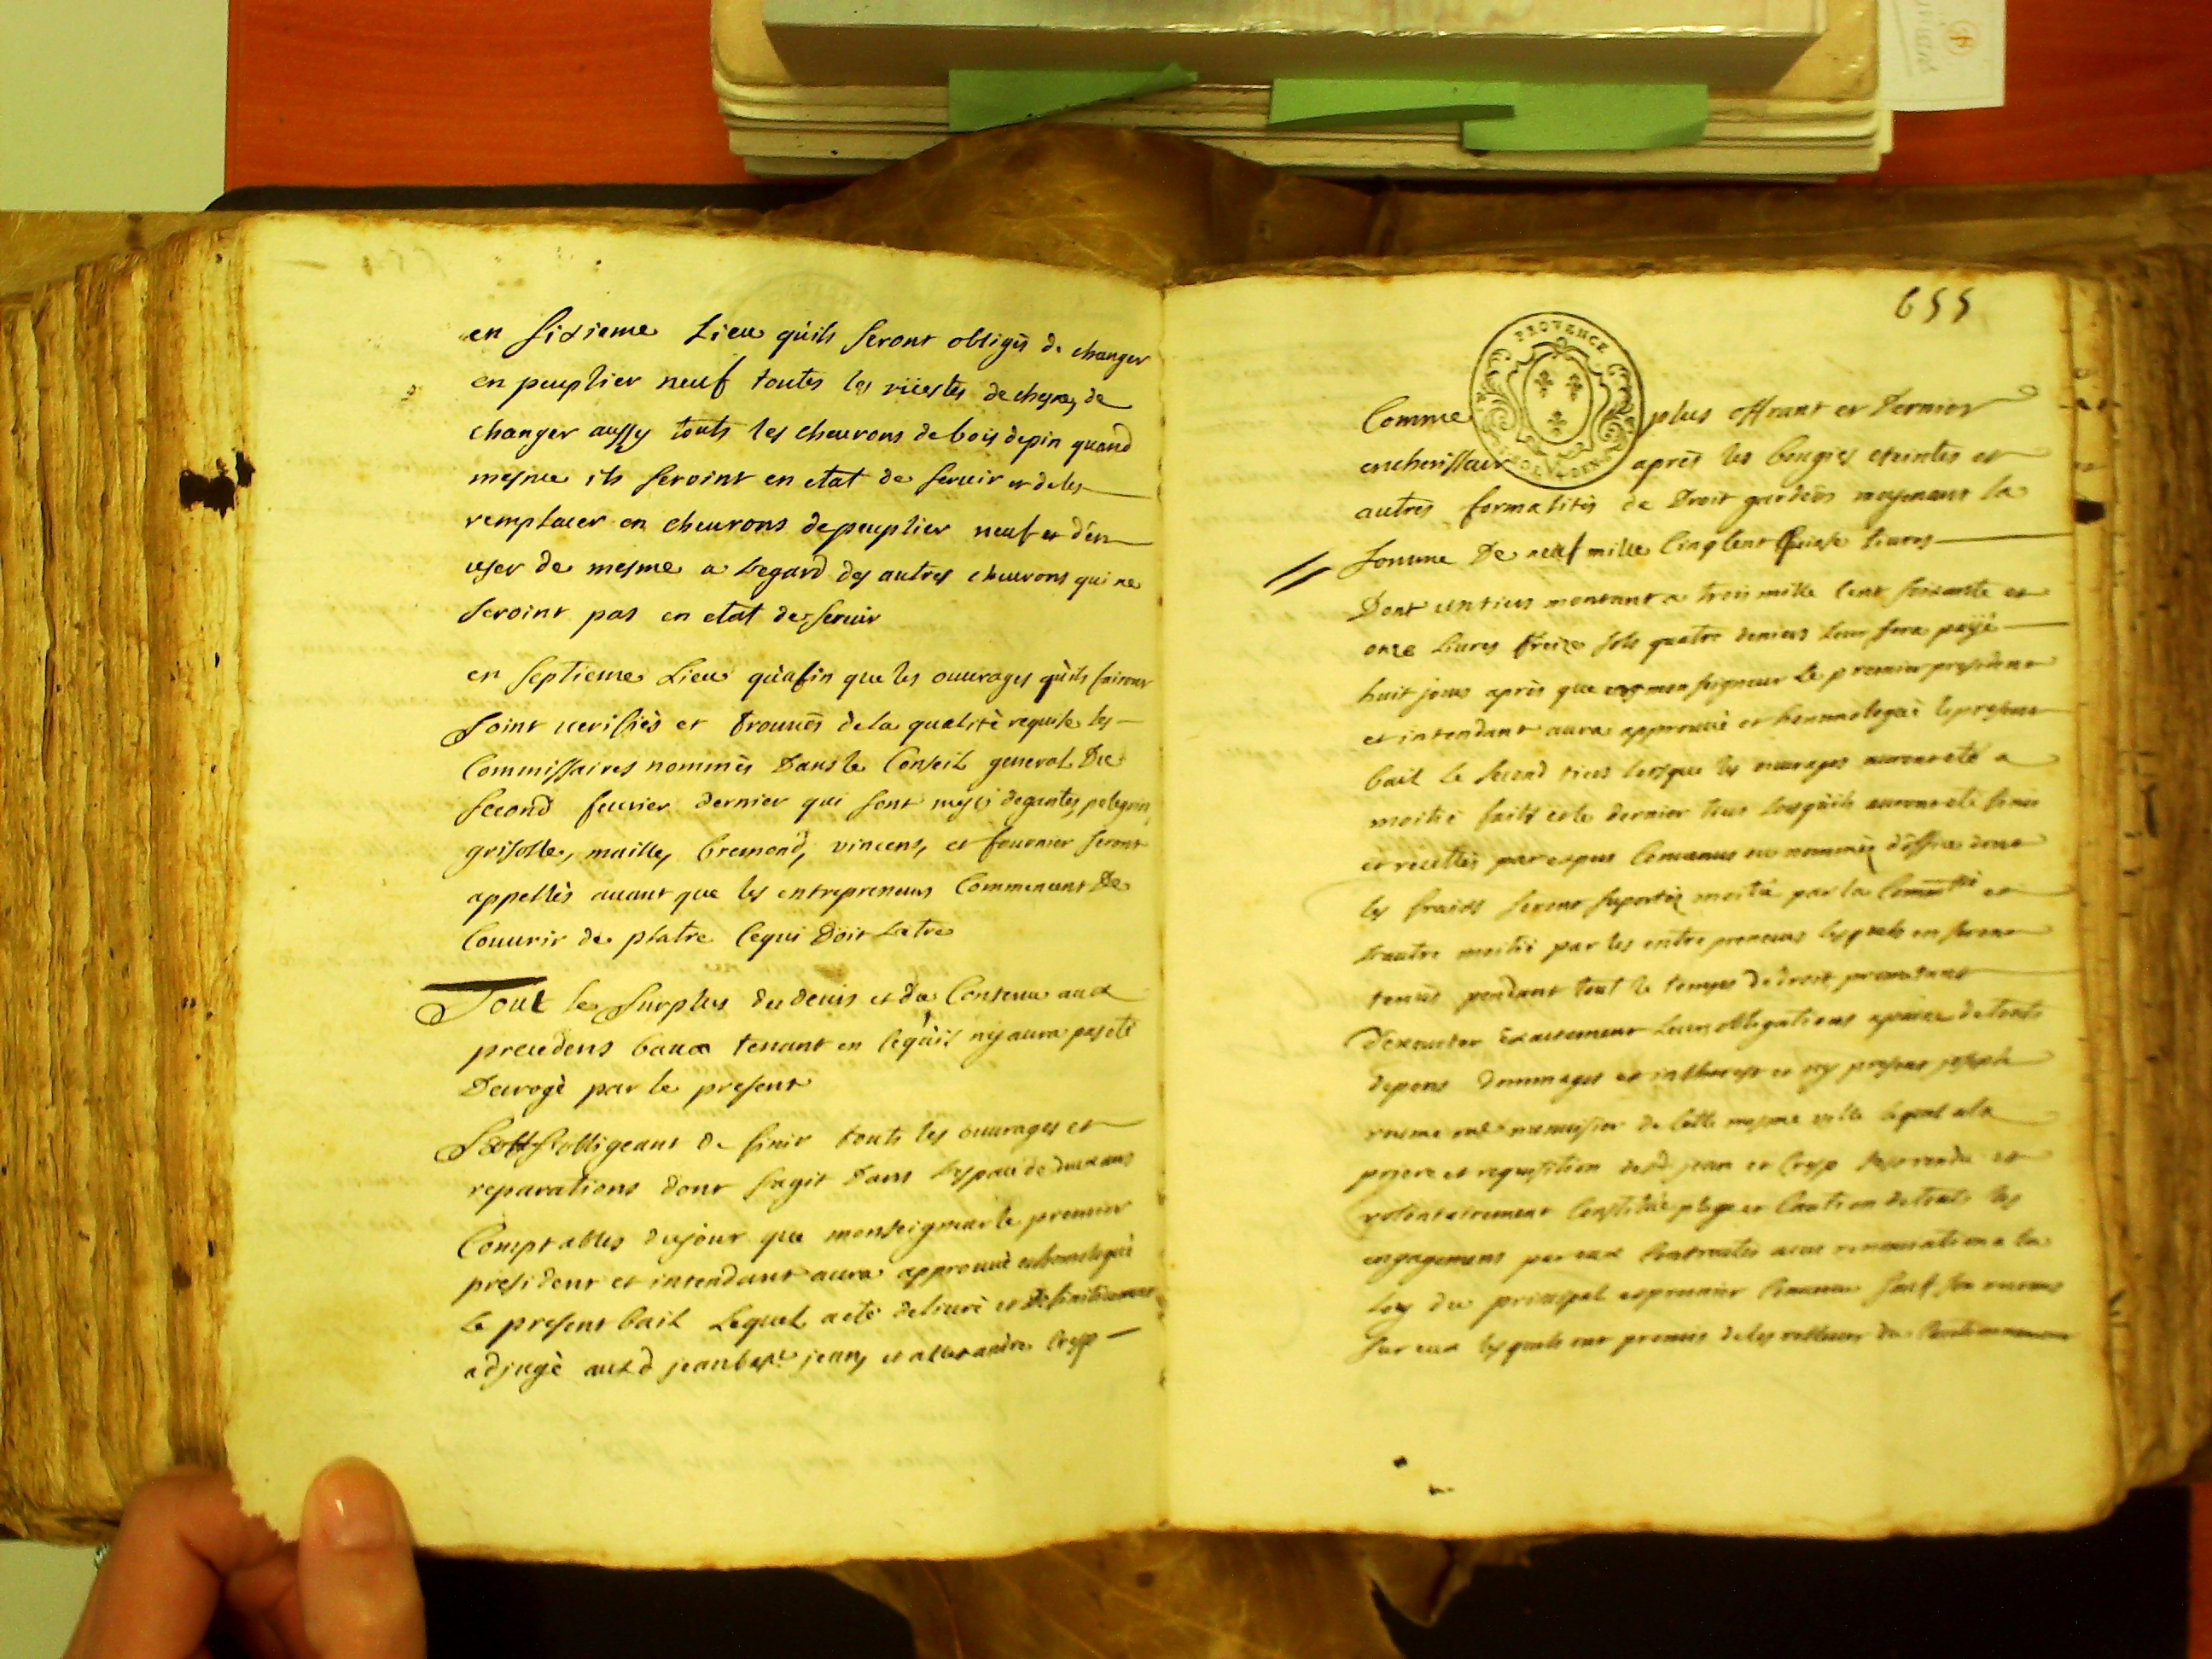 en sixieme Lieu quils seront obligés de changer
en peuplier neuf toutes les de chesne, de
changer aussy touts les cheurons de bois de pin quand
mesme ils seroint en etat de seruir et de les
remplacer en cheurons de peuplier neuf et d'en
user de mesme a Legard des autres cheurons qui ne
seroint pas en etat de seruir
en septieme Lieu quàfin que les ouurages quils fairont
soint uerifiès et trouués de la qualitè requise les
Commissaires nommès Dans le Conseil general Du
second feurier dernier qui sont mess.rs degantes, pelegrin,
grisolle, maille, bremond, vincens, et fournier seront
appellès auant que les entrepreneurs Commencent De
Couurir de platre Cequi Doit Letre
Tout le surplus du deuis et du Contenu aux
precedens baux tenant en ce quìl ny aura pas eté
Derrogè par le present
S'obligeant de finir touts les ouurages et
reparations dont sagit Dans Lespace de deux ans
Comptables du jour que monseigneur le premier
president et intendant aura approuuè et homologué
le present bail Lequel a eté deliuré et definitiuement
adjugè aux d jean bap.te jean, et allexandre Cresp
655
PROVENCE
Comme plus offrant et Dernier
encherisseur après les bougies eteintes et
autres formalités de Droit gardées moyenant la
somme De neuf mille Cinq Cent Quinse Liures
Dont un tiers montant a trois mille Cent soixante et
onze Liures treize sols quatre deniers Leur sera payé
huit jours après que monseigneur Le premier president
et intendant aura approuuè et hommologué le present
bail le second tiers lorsque les ouurages auront eté a
moitié faits et le dernier tiers Lorsquils auront eté finis
et recettés par expers Conuenus ou nommés d'office dont
les fraids seront suportés moitié par la Comm.té et
Lautre moitié par les entrepreneurs lesquels en seront
tenus pendant tout le temps de droit promettant
d'executer Exactement Leurs obligations a peine de touts
depens dommages et intherest et icy present joseph
menuisier de Cette mesme ville lequel a la
priere et requisition des d jean et Cresp sest rendu et
volontairement Constitué plege et Caution de touts les
engagemens par eux Contractés auec renonciation a la
Loy du principal et premier Conuenu sauf son recours
sur eux lesquels ont promis de les releuer du Cautionnement